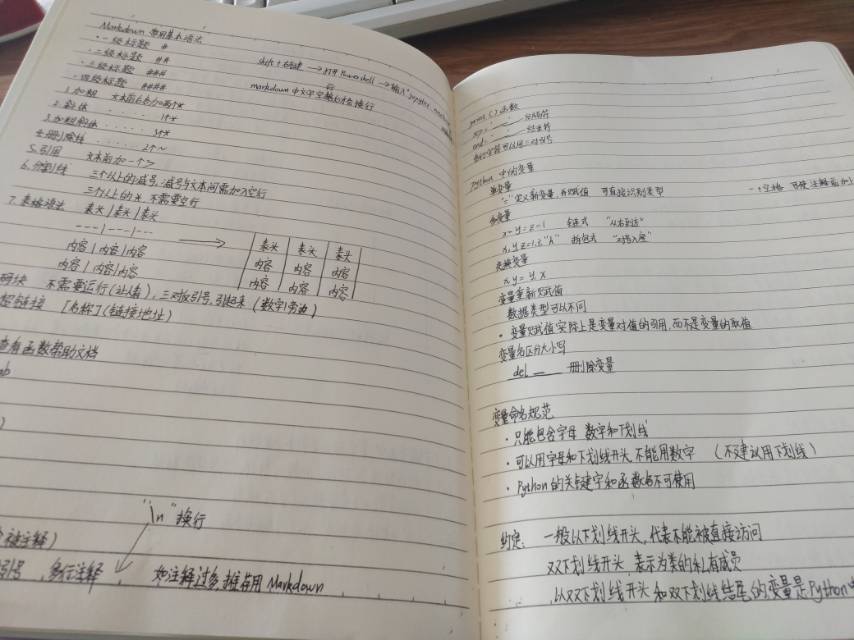 Markdown 常用基本语法
·一级标题 #
·二级标题 ##
·三级标题 ###
·四级标题 ####
shift + 右键 → 打开 Powershell → 输入"jupyter
markdown中文字空格
换行
1.加粗 文本前后各加两个*
2.斜体 ...... 1个*
3.加粗斜体 ...... 3个*
4.删除线 ...... 2个~
5.引用 文本前加一个>
6.分割线 三个以上的减号,减号与文本间需加入空行
三个以上的* 不需要空行
7.表格语法 表头|表头|表头
---|---|---
内容|内容|内容
内容|内容|内容
→
表头 表头 表头
内容 内容 内容
内容 内容 内容
码块 不需要运行(让人看),三对反引号,引起来(数字1旁边)
超链接 [名称](链接地址)
查看函数帮助文档
ab
)
"\n"换行
被注释)
引号,多行注释,如注释过多,推荐用 Markdown
print()函数
sep= 分隔符
end= 结束符
Python中的变量
单变量
"="定义新变量,并赋值 可直接识别类型
多变量
x=y=z=1 链式 "从右到左"
x,y,z=1,2,"A" 拆包式 "对号入座"
交换变量
x,y=y,x
变量重新赋值
数据类型可以不同
·变量赋值实际上是变量对值的引用,而不是变量的取值
变量名区分大小写
del 删除变量
变量命名规范
·只能包含字母 数字和下划线
·可以用字母和下划线开头,不能用数字 (不建议用下划线)
·Python的关键字和函数名不可使用
约定: 一般以下划线开头,代表不能被直接访问
双下划线开头 表示为类的私有成员
以双下划线开头和双下划线结尾的变量是Python